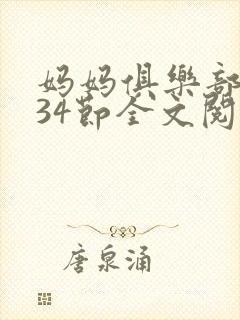 妈妈俱樂部
34節全文閱
唐泉涌